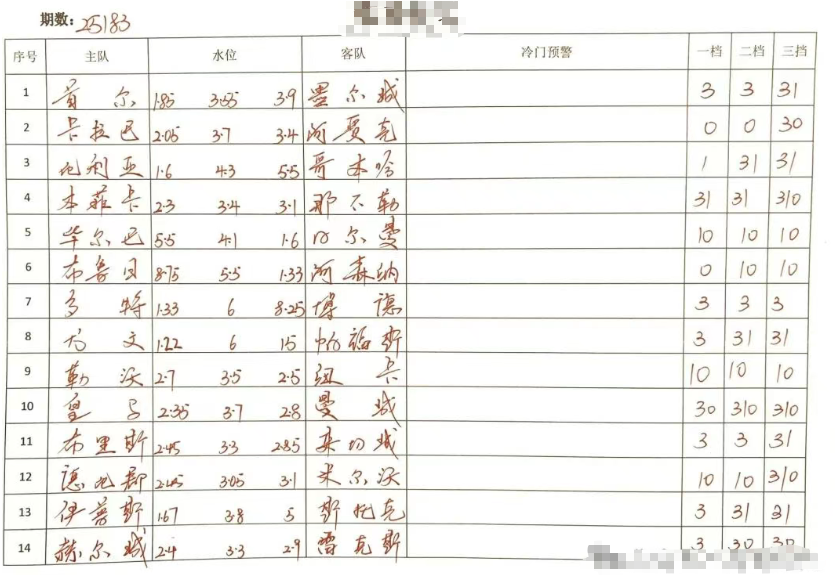 期数: 25183
序号 主队 水位 客队 冷门预警 一档 二档 三挡
1 首尔 1.85 3.55 3.9 墨尔城 3 3 31
2 卡拉巴 2.05 3.7 3.4 阿贾克 0 0 30
3 比利亚 1.6 4.3 5.5 哥本哈 1 31 31
4 本菲卡 2.3 3.4 3.1 那不勒 31 31 310
5 毕尔巴 5.5 4.1 1.6 日尔曼 10 10 10
6 布鲁日 8.75 5.5 1.33 阿森纳 0 10 10
7 多特 1.33 6 8.25 博德 3 3 3
8 尤文 1.22 6 15 帕福斯 3 31 31
9 勒沃 2.7 3.5 2.5 纽卡 10 10 10
10 皇马 2.35 3.7 2.8 曼城 30 310 310
11 布里斯 2.45 3.3 2.85 莱切城 3 3 31
12 德比郡 2.45 3.05 3.1 米尔沃 10 10 310
13 伊普斯 1.67 3.8 5 斯托克 3 31 31
14 赫尔城 2.4 3.3 2.9 雷克斯 3 30 30